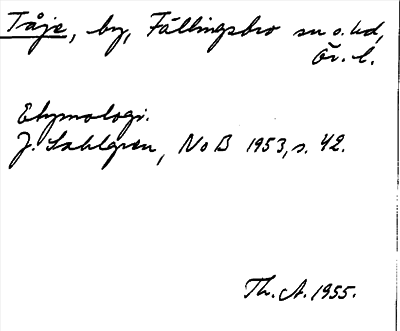 Tåje, by, Fällingsbro sn o. hd,
Ör. l.
Etymologi.
J. Sahlgren, NoB 1953, s. 42.
Th. A. 1955.